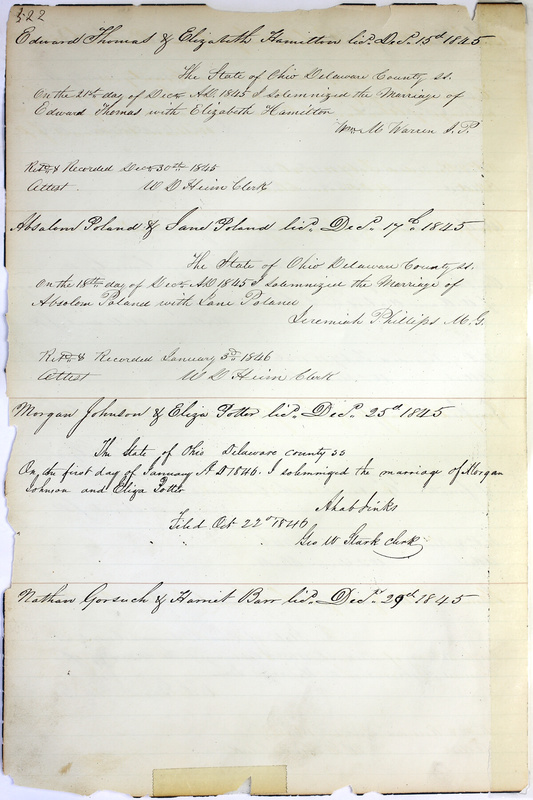 522
Edward Thomas & Elizabeth Hamilton lic'd Dec'r 15d 1845
The State of Ohio Delaware County ss.
On the 21st day of Dec'r A.D. 1845 I solemnized the Marriage of
Edward Thomas with Elizabeth Hamilton
Wm M Warren J.P.
Ret'd & Recorded Dec'r 30th 1845
Attest. W D Heim Clerk
Absalom Poland & Jane Poland lic'd Dec'r 17th 1845
The State of Ohio Delaware County ss.
On the 18th day of Dec'r A.D 1845 I solemnized the Marriage of
Absolom Poland with Jane Poland
Jeremiah Phillips M.G.
Ret'd & Recorded January 3d 1846
Attest W D Heim Clerk
Morgan Johnson & Eliza Potter lic'd Dec'r 25d 1845
The State of Ohio Delaware County ss
On the first day of January A D 1846. I solemnized the marriage of Morgan
Johnson and Eliza Potter
Ahab Jinks
Filed Oct 22d 1846
Geo W Stark Clerk
Nathan Gorsuch & Harriet Barr lic'd Dec'r 29d 1845